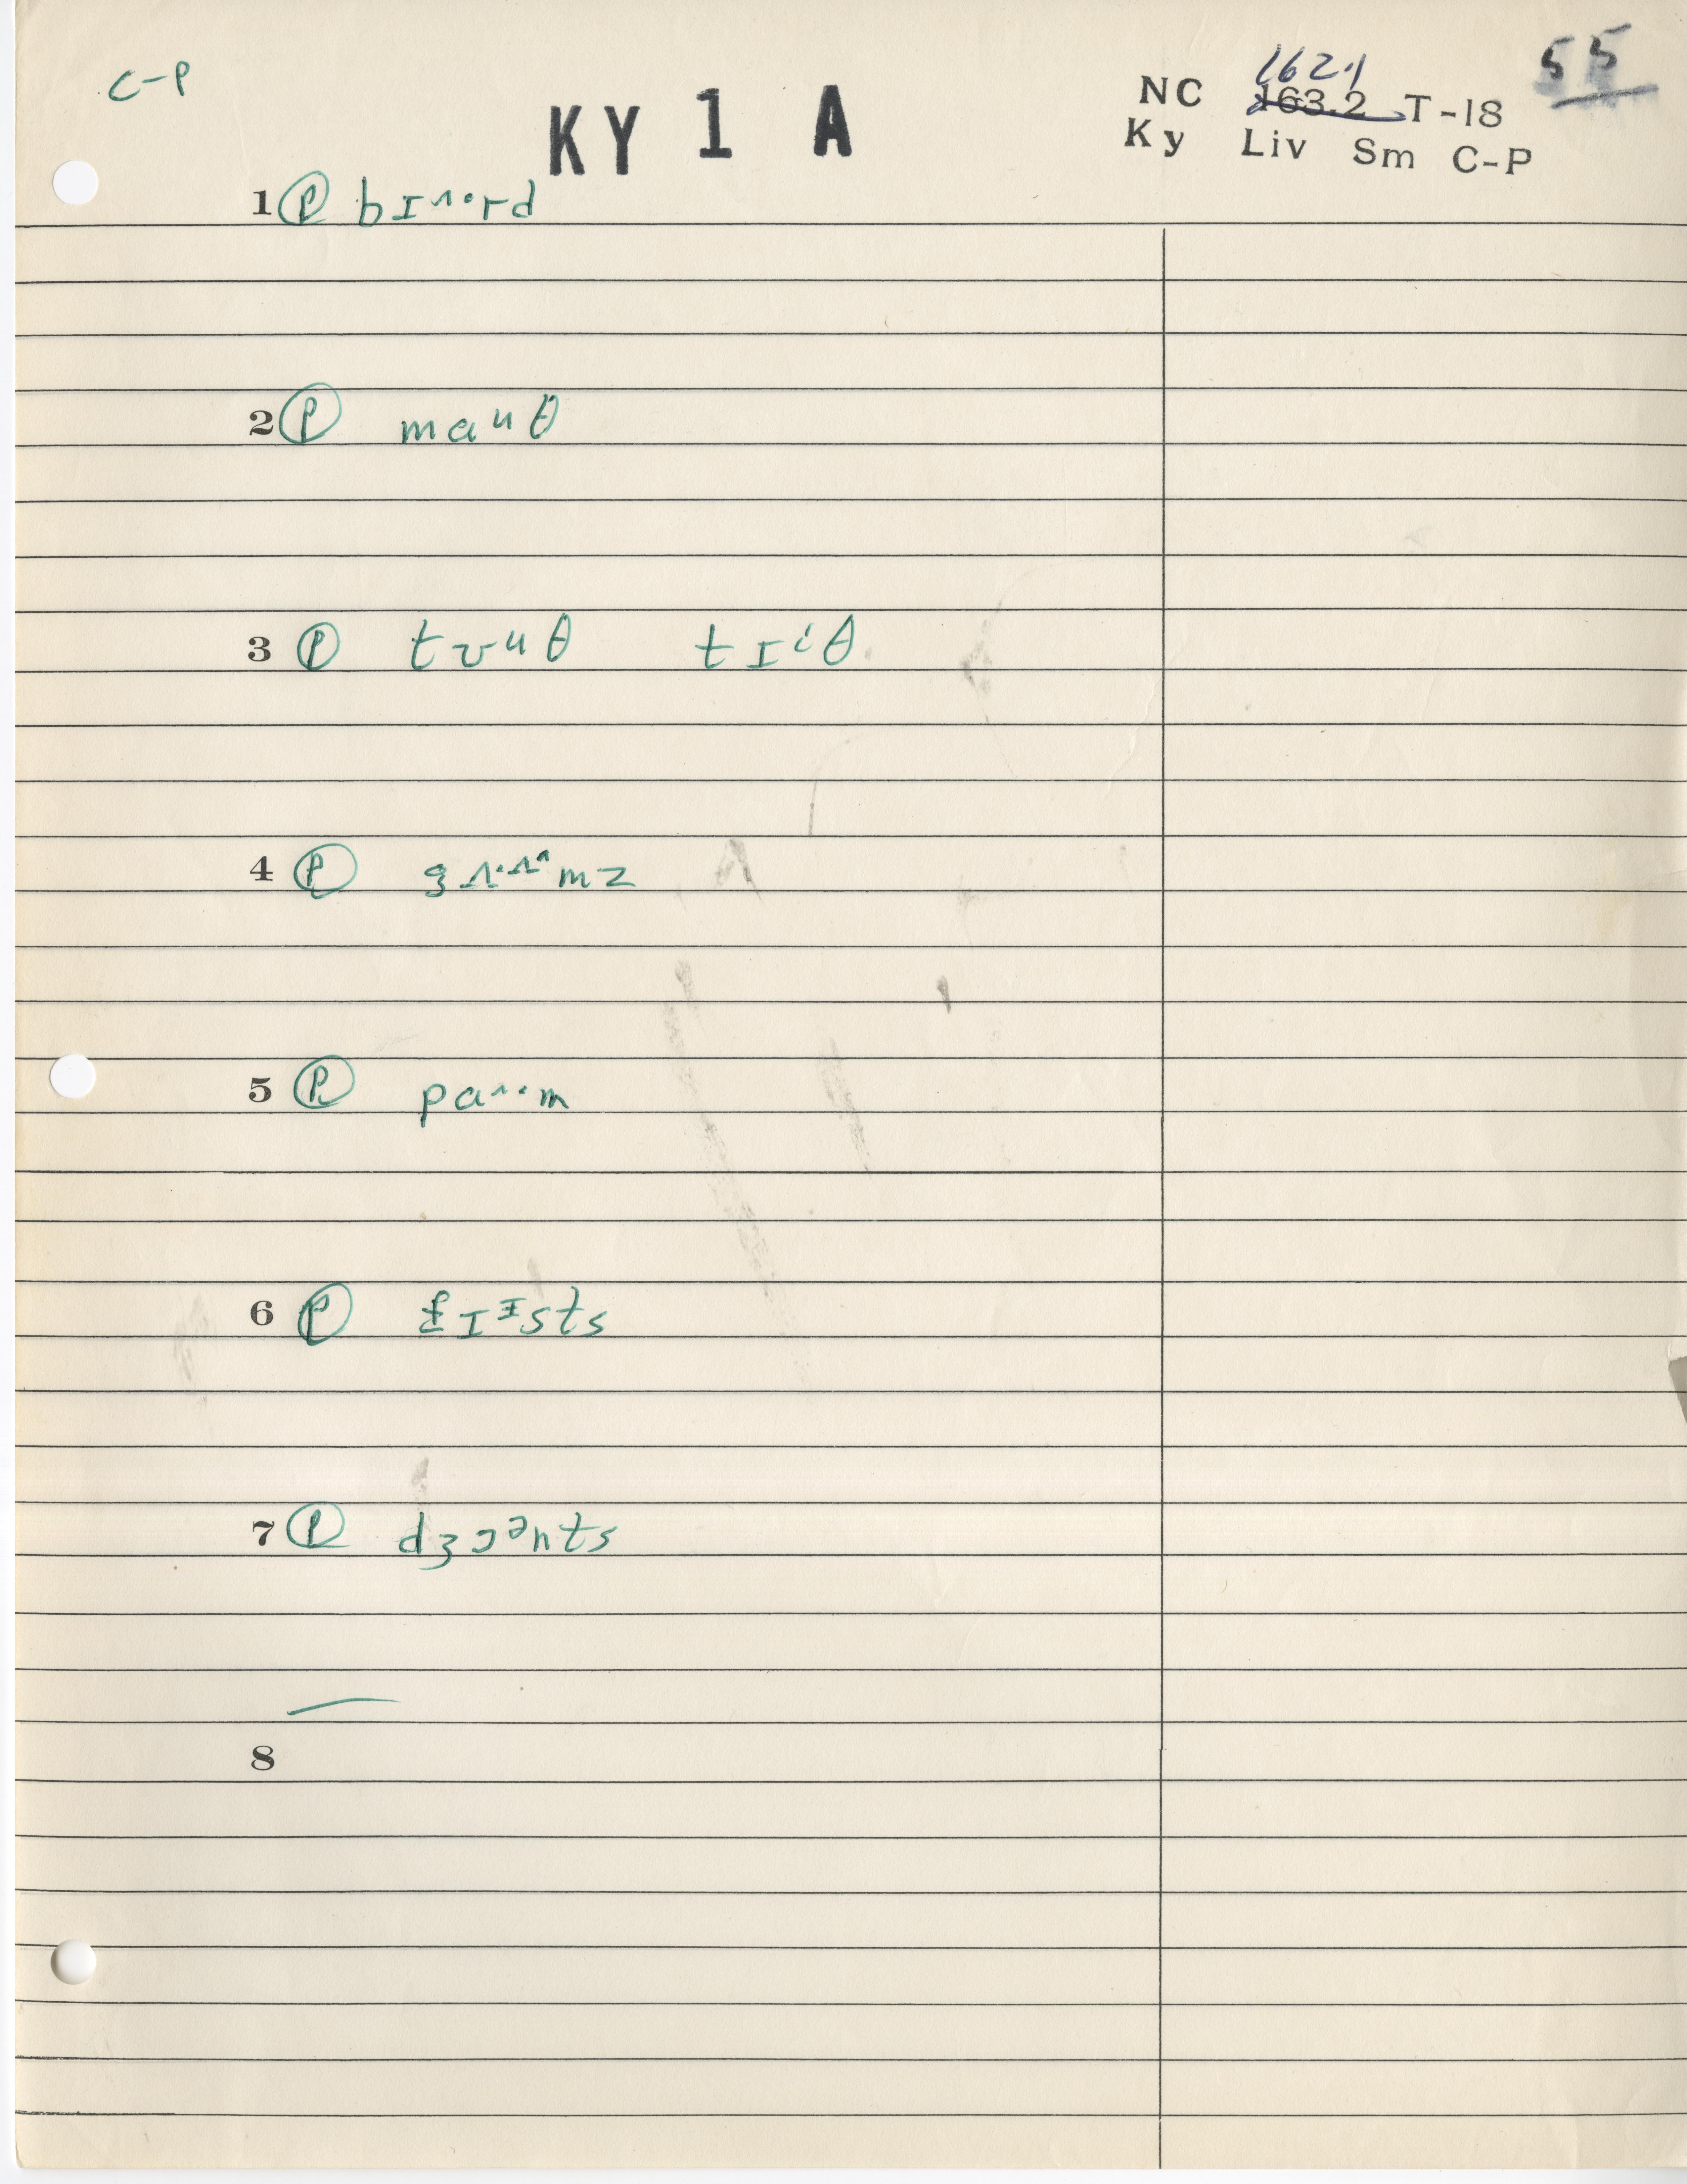 C-P
KY 1 A
1621
NC 163.2 T-18
55
Ky Liv Sm C-P
1 Ⓟ bɪʌ·rd
2 Ⓟ mauθ
3 Ⓟ tʊuθ tɪiθ
4 Ⓟ gʌ·ʌmz
5 Ⓟ paʌ·m
6 Ⓟ fɪɪsts
7 Ⓟ dʒɔənts
8